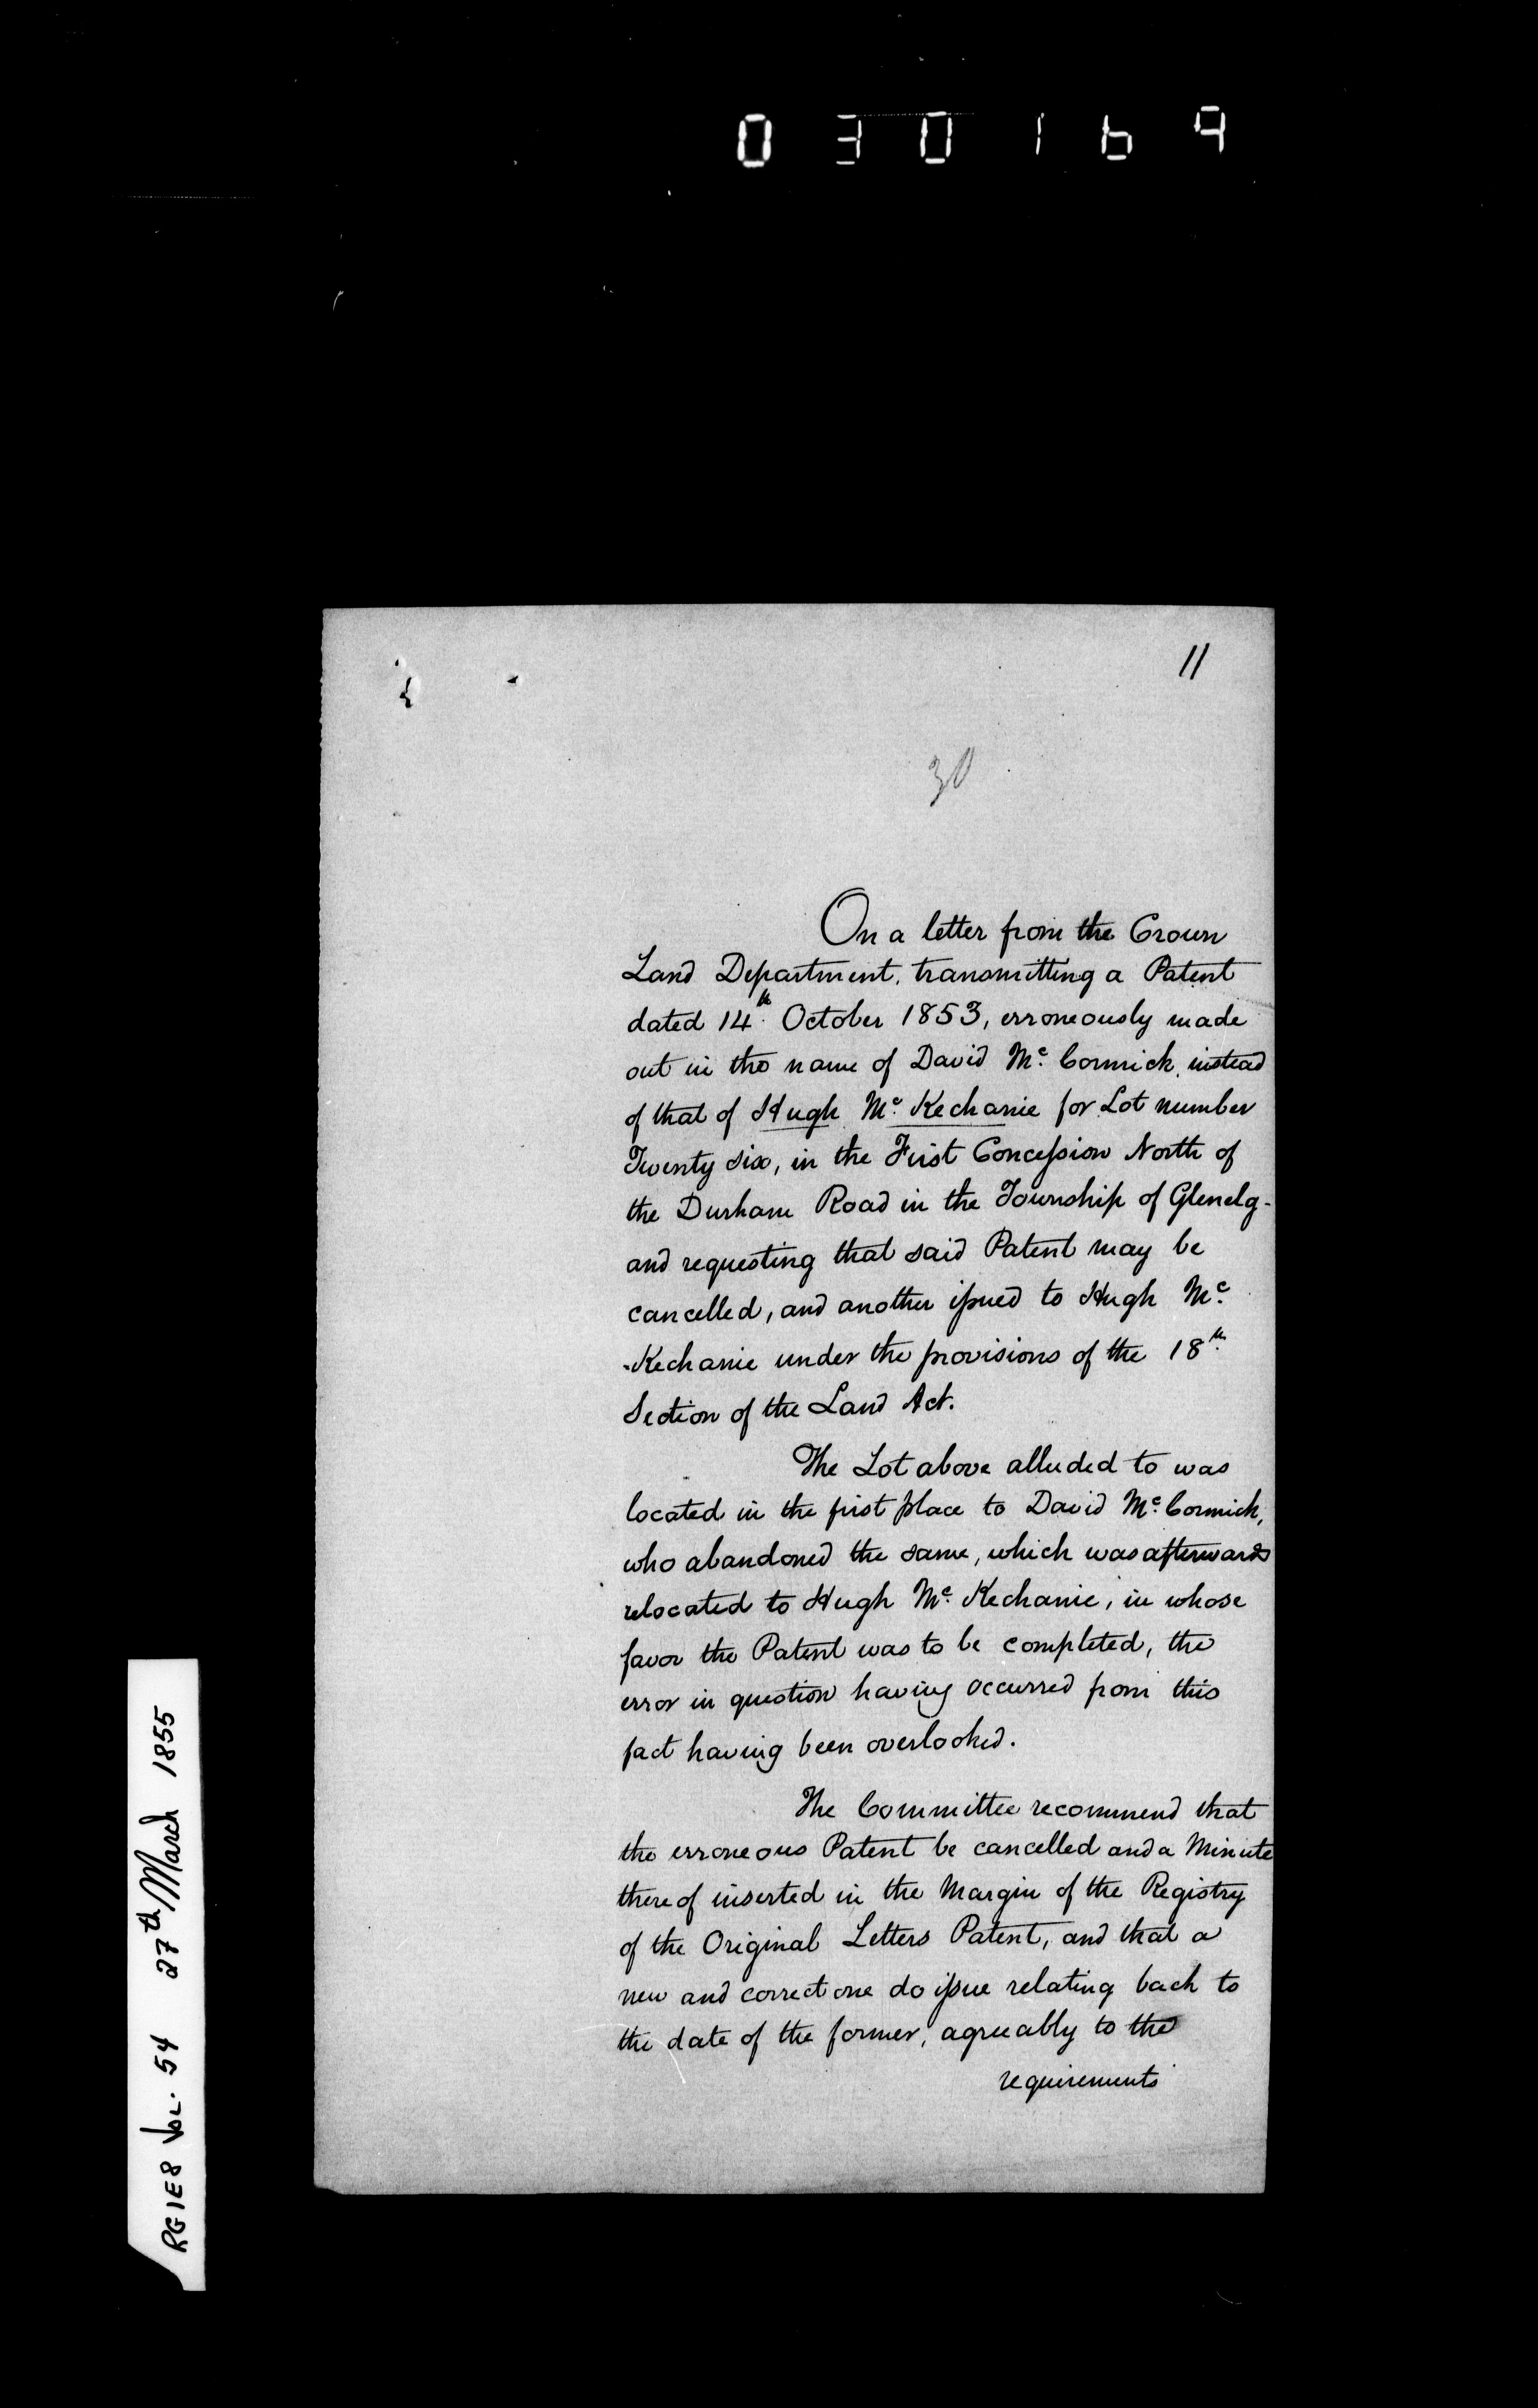 030169
11
30
On a letter from the Crown
Land Department, transmitting a Patent
dated 14th October 1853, erroneously made
out in the name of David Mc. Cormick, instead
of that of Hugh Mc. Kechanie for Lot number
Twenty six, in the First Concession North of
the Durham Road in the Township of Glenelg -
and requesting that said Patent may be
cancelled, and another issued to Hugh Mc.
Kechanie under the provisions of the 18th
Section of the Land Act.
The Lot above alluded to was
located in the first place to David Mc. Cormick,
who abandoned the same, which was afterwards
relocated to Hugh Mc. Kechanie, in whose
favor the Patent was to be completed, the
error in question having occurred from this
fact having been overlooked.
The Committee recommend that
the erroneous Patent be cancelled and a Minute
thereof inserted in the Margin of the Registry
of the Original Letters Patent, and that a
new and correct one do issue relating back to
the date of the former, agreeably to the
requirements
RG1E8 Vol. 54 27th March 1855